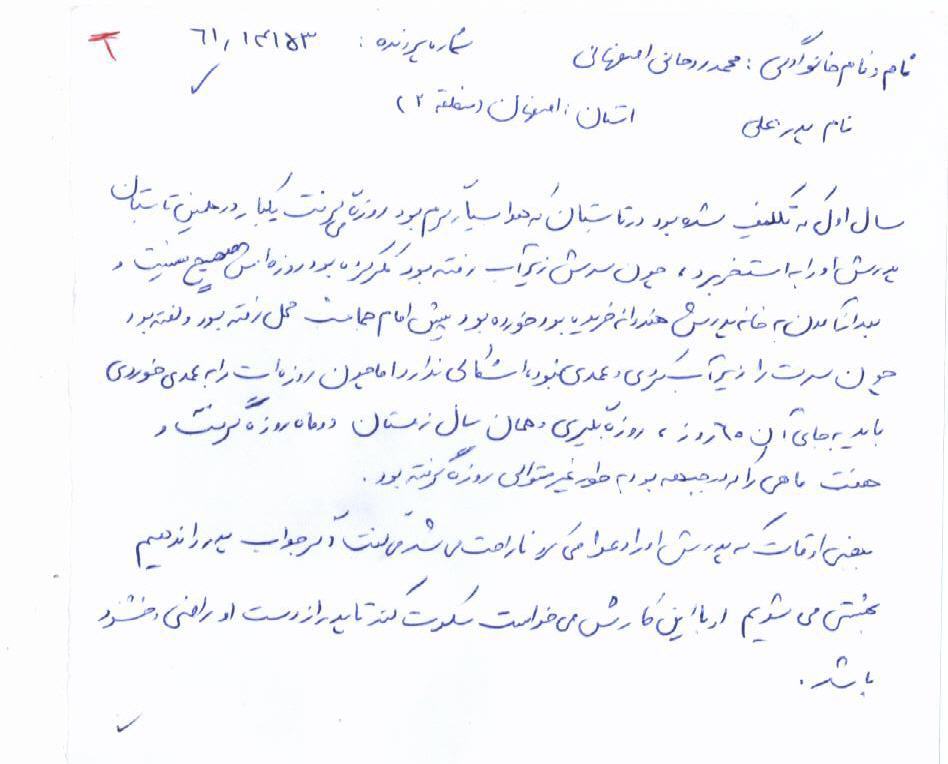 نام و نام خانوادگی : محمد روحانی اصفهانی شماره پرونده : ۶۱,۱۴۱۵۳
نام پدر : علی استان : اصفهان (منطقه ۲)
سال اول که تکلیف شده بود در تابستان که هوا بسیار گرم بود روزه می گرفت یکبار در همین تابستان
پدرش او را به استخر برد ، چون سرش زیر آب رفته بود فکر کرده بود روزه اش صحیح نیست و
بعد از آمدن به خانه پدرش هندوانه خریده بود خورده بود پیش امام جماعت محل رفته بود و گفته بود
چون سرت را زیر آب کردی و عمدی نبود، اشکالی ندارد اما چون روزه ات را به عمدی خوردی
باید به جای آن ۶۰ روز ، روزه بگیری و همان سال زمستان دو ماه روزه گرفت و
هفت ماهی را که در جبهه بود به طور غیر متوالی روزه گرفته بود .
بعضی اوقات که پدرش او را دعوا می کرد ناراحت می شد می گفت اگر جواب پدر را ندهیم
بهشتی می شویم او با این کارش می خواست سکوت کند تا پدر از دست او راضی و خشنود
باشد .